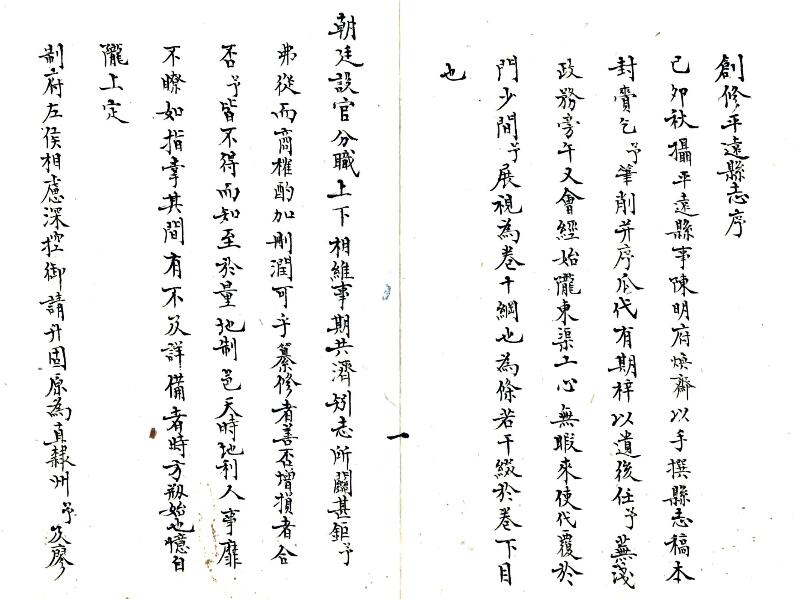 創修平遠縣志序
己卯秋攝平遠縣事陳明府煥齋以手撰縣志稿本
封賫乞予筆削并序瓜代有期梓以遺後任予蕪淺
政務旁午又會經始隴東渠工心無暇來使代覆於
門少間予展視為卷十綱也為條若干綴於卷下目
也
一
朝廷設官分職上下相維事期共濟矧志所關甚鉅予
弗從而商榷酌加刪潤可乎纂修者善否增損者合
否予皆不得而知至於量地制邑天時地利人事靡
不瞭如指掌其間有不及詳備者時方剏始也憶自
隴上定
制府左侯相慮深控御請升固原為直隸州予及廖